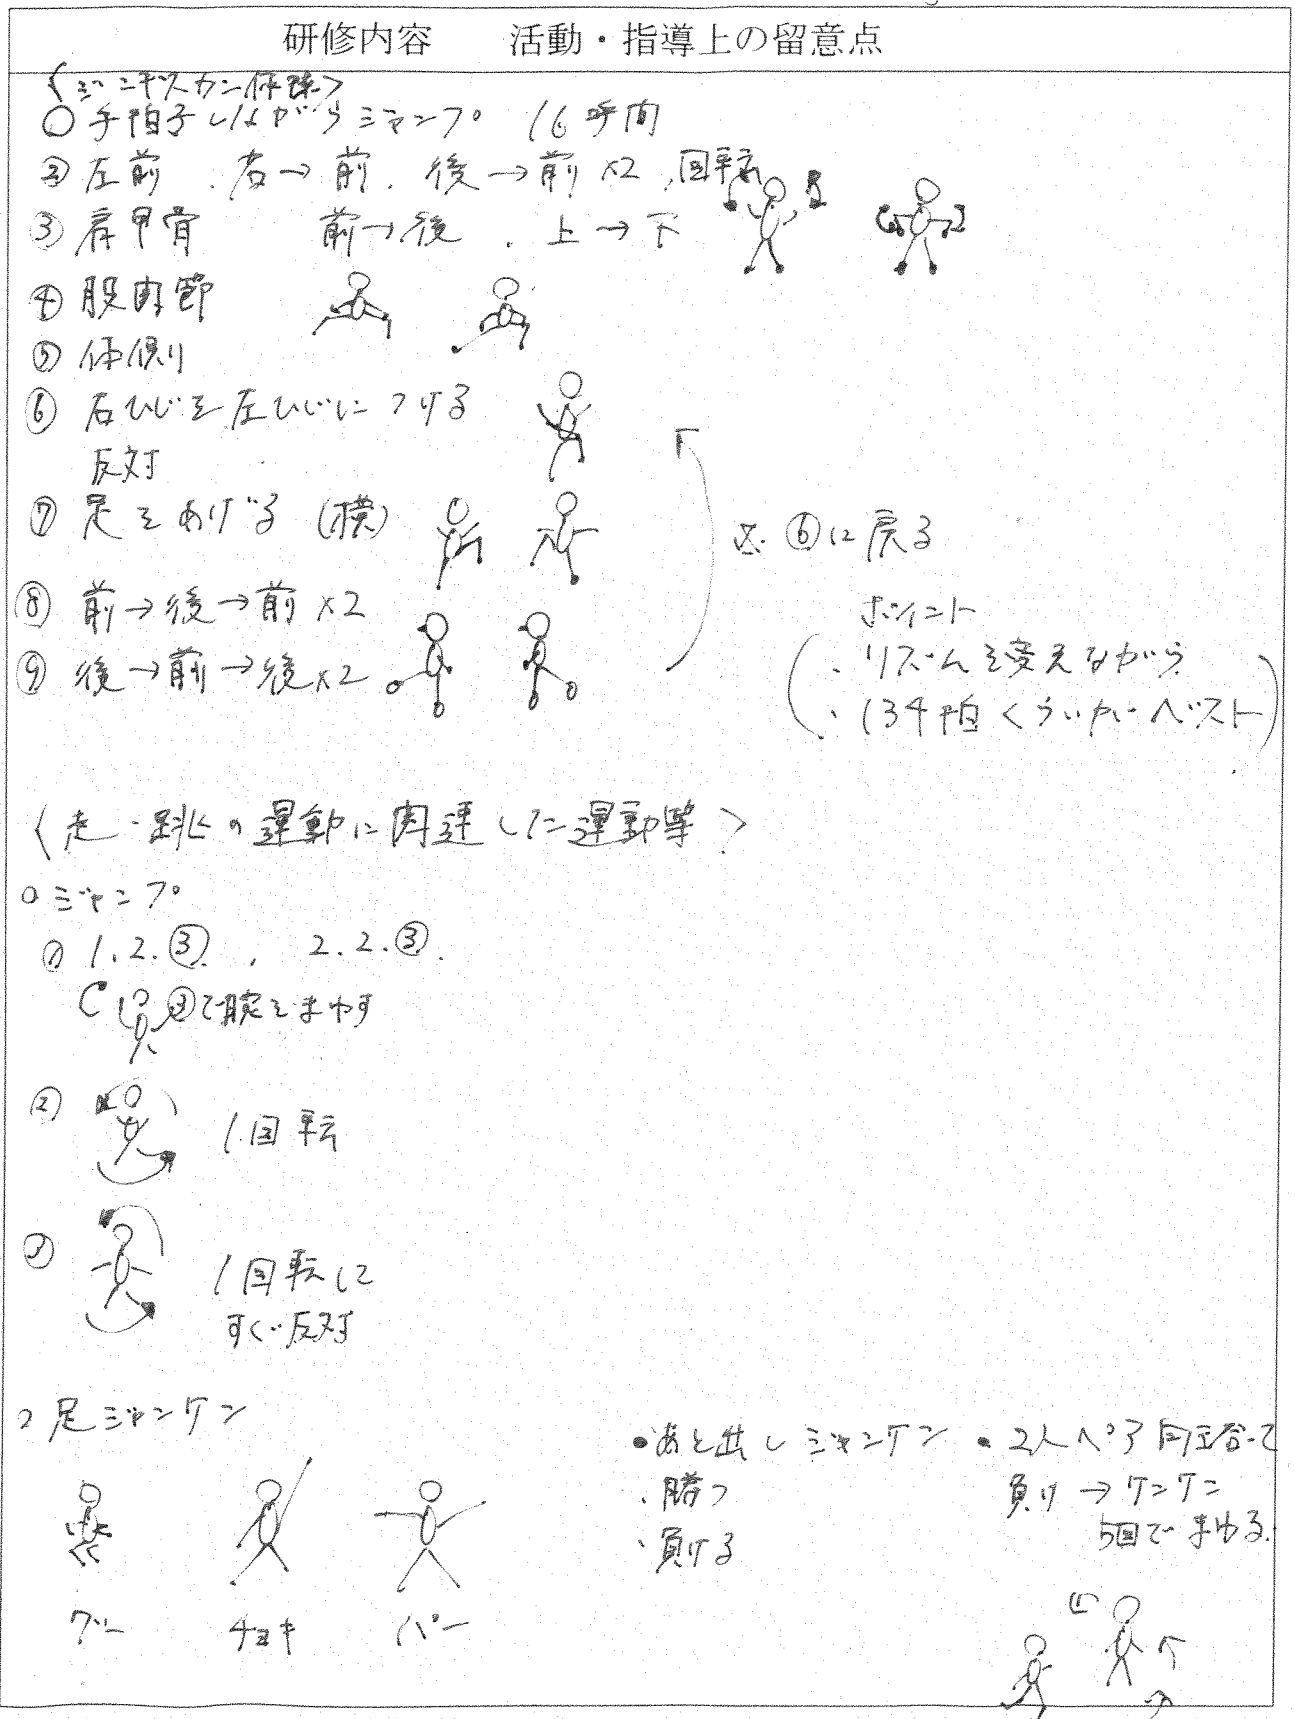 研修内容　　活動・指導上の留意点
〈ジンギスカン体操〉
○手拍子しながらジャンプ 16呼間
② 左前、右→前、後→前×2、回転
③ 肩甲骨 前→後、上→下
④ 股関節
⑤ 体側
⑥ 右ひじを左ひじにつける
反対
⑦ 足をあげる (横)
※ ⑥に戻る
⑧ 前→後→前×2
⑨ 後→前→後×2
ポイント
・リズムを変えながら
・134拍くらいがベスト
〈走・跳の運動に関連した運動等〉
○ジャンプ
① 1.2.③. , 2.2.③.
③で腕をまわす
② 1回転
③ 1回転に
すぐ反対
○足ジャンケン
グー チョキ パー
●あと出しジャンケン
・勝つ
・負ける
●2人ペア向き合って
負け→ケンケン
5回でまわる。